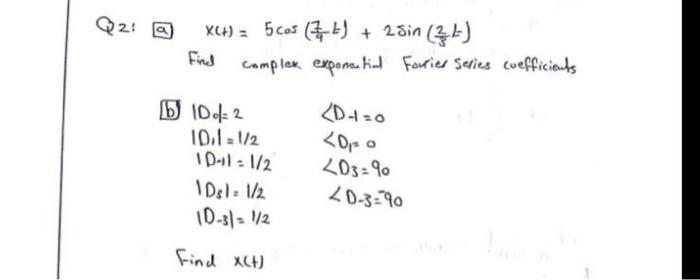 Q2: a x(t) = 5cos (7/4 t) + 2sin (2/3 t)
Find complex exponential Fourier Series coefficients
b |D0|= 2 <D-1=0
|D1| = 1/2 <D1= 0
|D-1| = 1/2 <D3=90
|D3| = 1/2 <D-3=-90
|D-3| = 1/2
Find x(t)